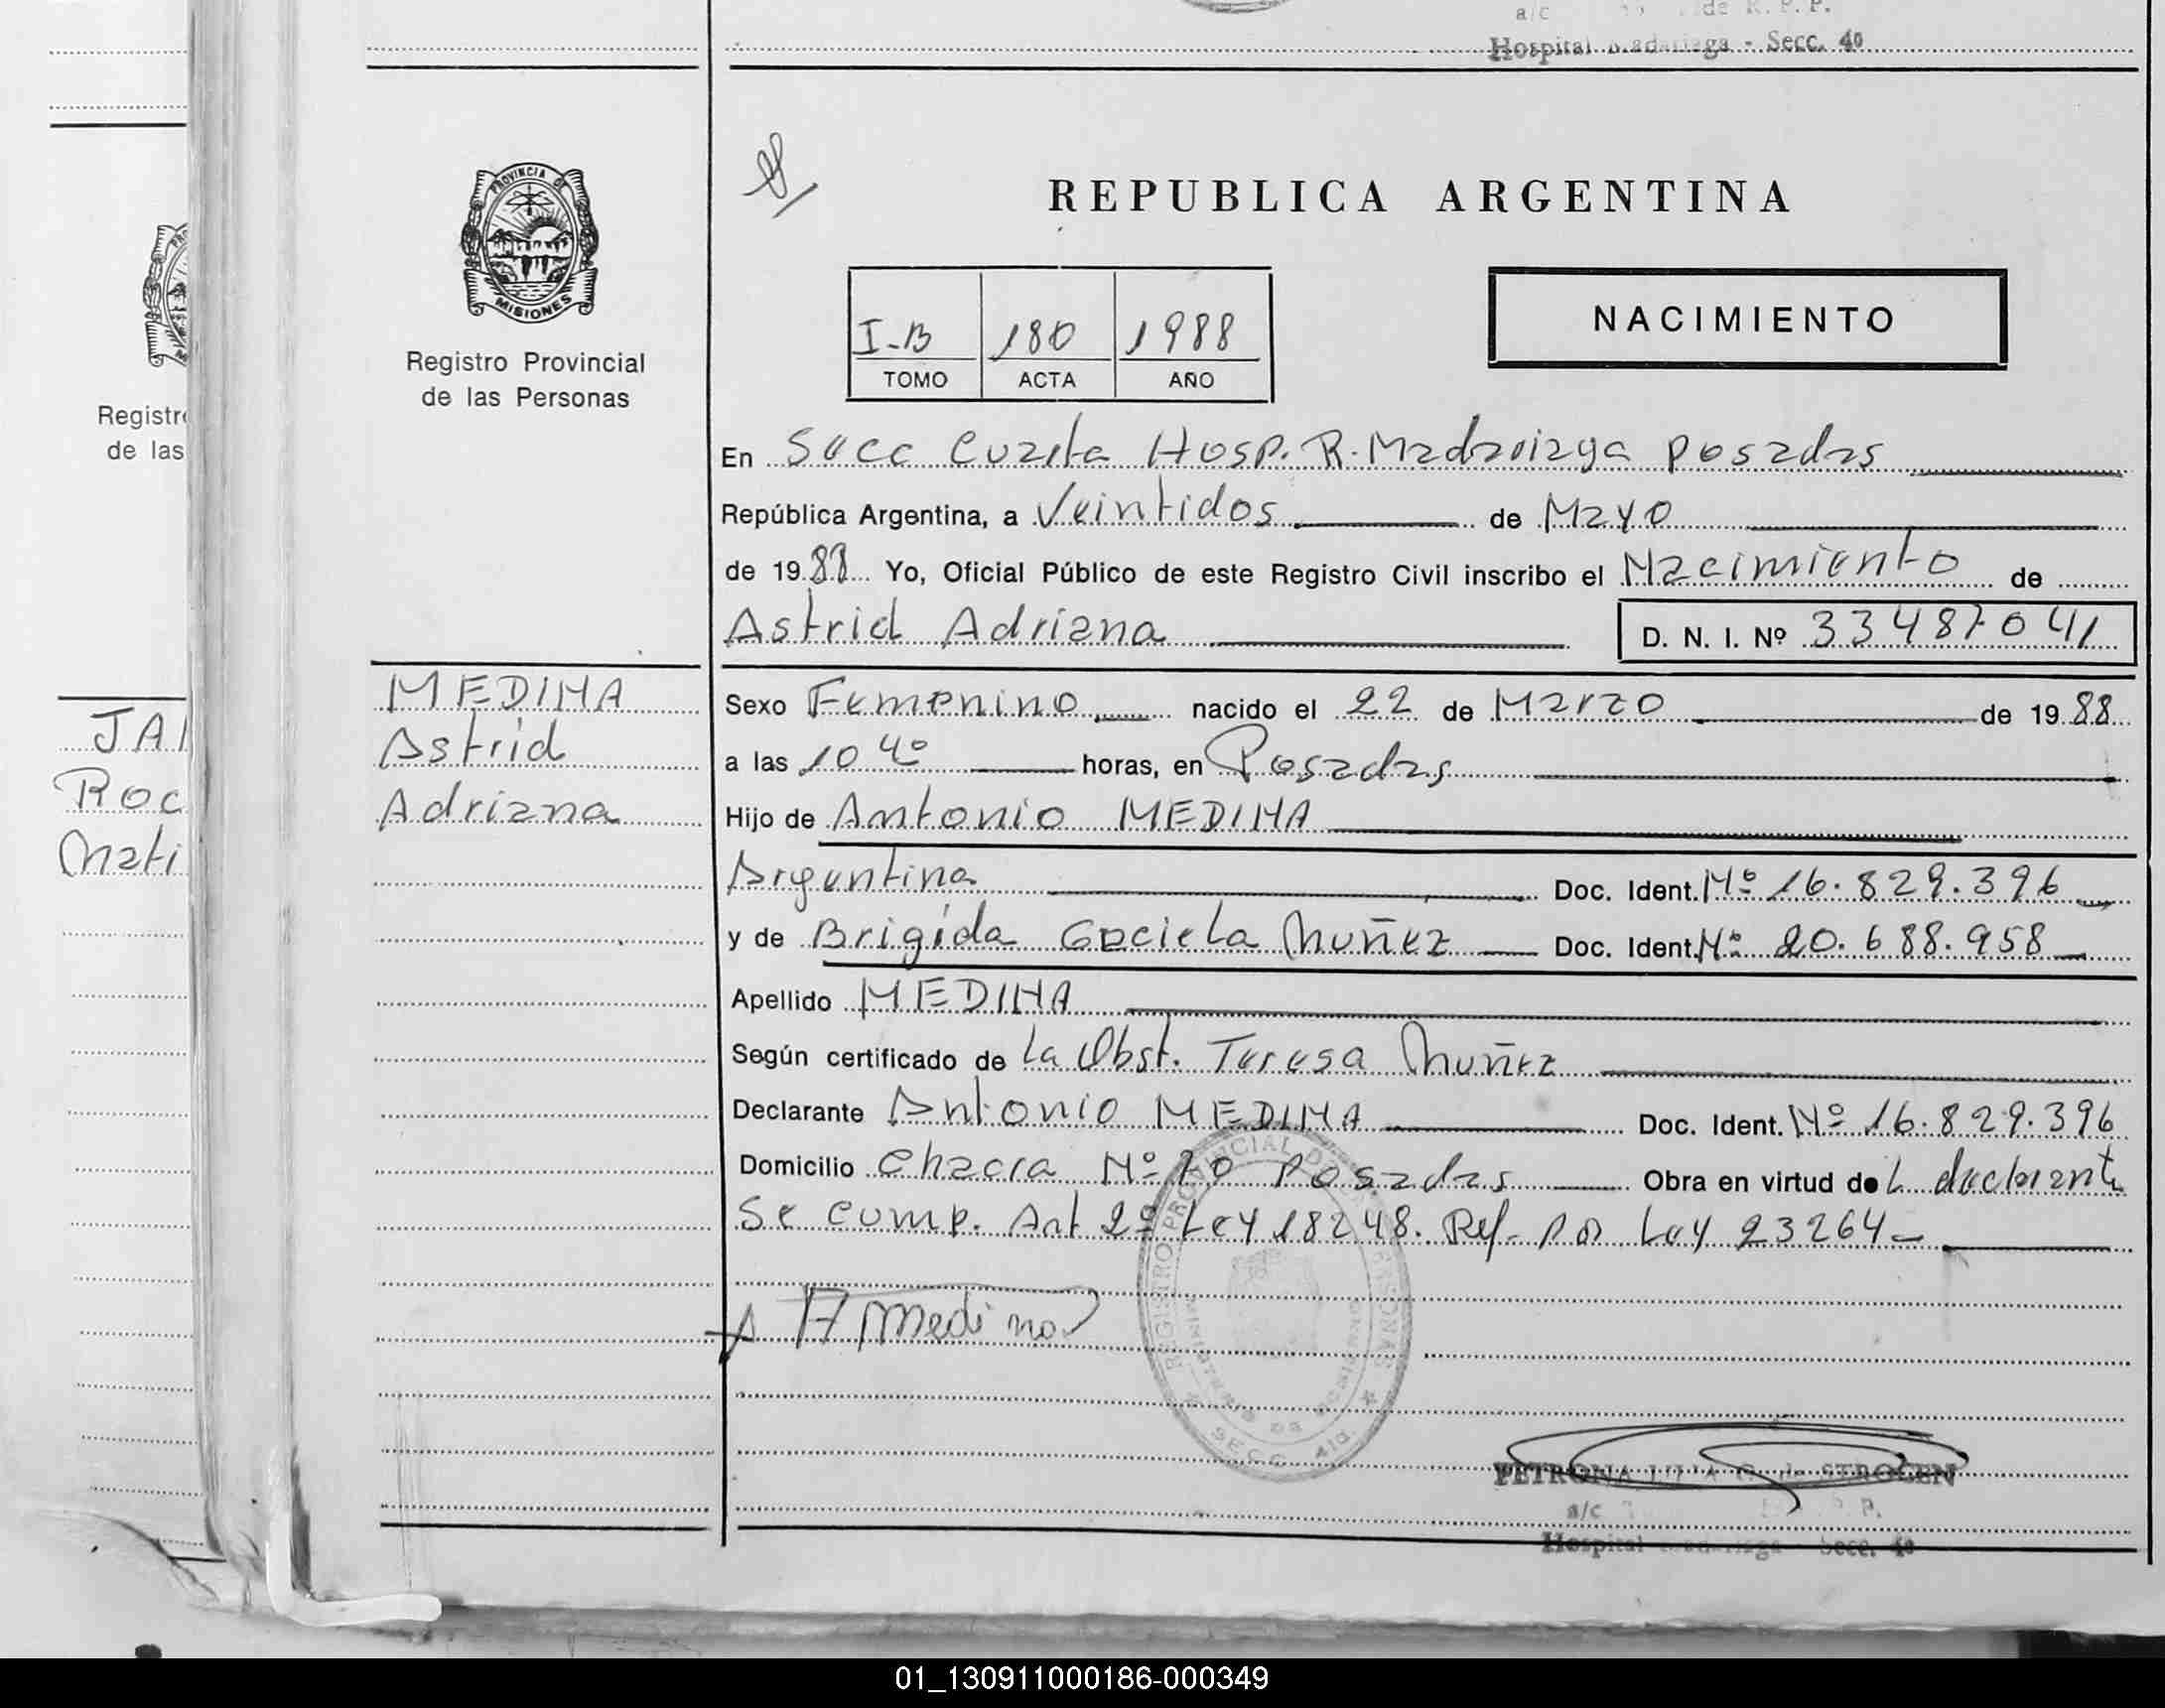 de R. P. P.
Hospital Madariaga - Secc. 4º
REPUBLICA ARGENTINA
PROVINCIA DE
MISIONES
Registro Provincial
de las Personas
I-B 180 1988
TOMO ACTA AÑO
NACIMIENTO
Registr
de las
En Secc Cuarta Hosp. R. Madariaga Posadas
República Argentina, a Veintidos de Mayo
de 1988 Yo, Oficial Público de este Registro Civil inscribo el Nacimiento de
Astrid Adriana D. N. I. Nº 33487041
MEDINA
Astrid
Adriana
JA
Roc
Mati
Sexo Femenino nacido el 22 de Marzo de 1988
a las 10 40 horas, en Posadas
Hijo de Antonio MEDINA
Argentina Doc. Ident. Nº 16.829.396
y de Brigida Gaciela Nuñez Doc. Ident. Nº 20.688.958
Apellido MEDINA
Según certificado de La Obst. Teresa Nuñez
Declarante Antonio MEDINA Doc. Ident. Nº 16.829.396
Domicilio Chacra Nº 70 Posadas Obra en virtud del declarante
Se cump. Art 2º Ley 18248. Ref. por Ley 23264
A Medina
REGISTRO PROVINCIAL DE LAS PERSONAS
MINISTERIO DE GOBIERNO
SECC. 4ta.
PETRONA LILIA G. de STROGEN
a/c R. P. P.
Hospital Madariaga - Secc. 4º
01_130911000186-000349